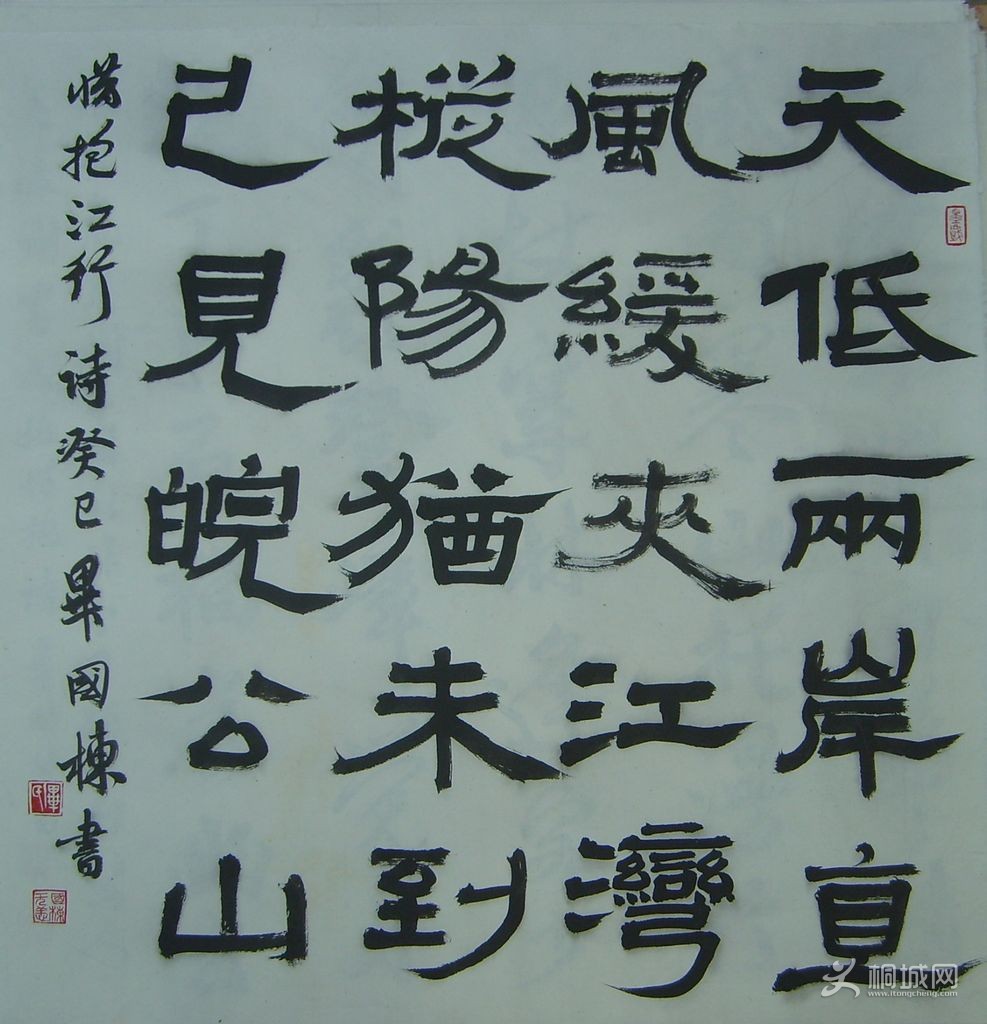 天低兩岸直
風緩夾江灣
樅陽猶未到
已見皖公山
惜抱江行詩癸巳畢國棟書
桐城网
www.itongcheng.com